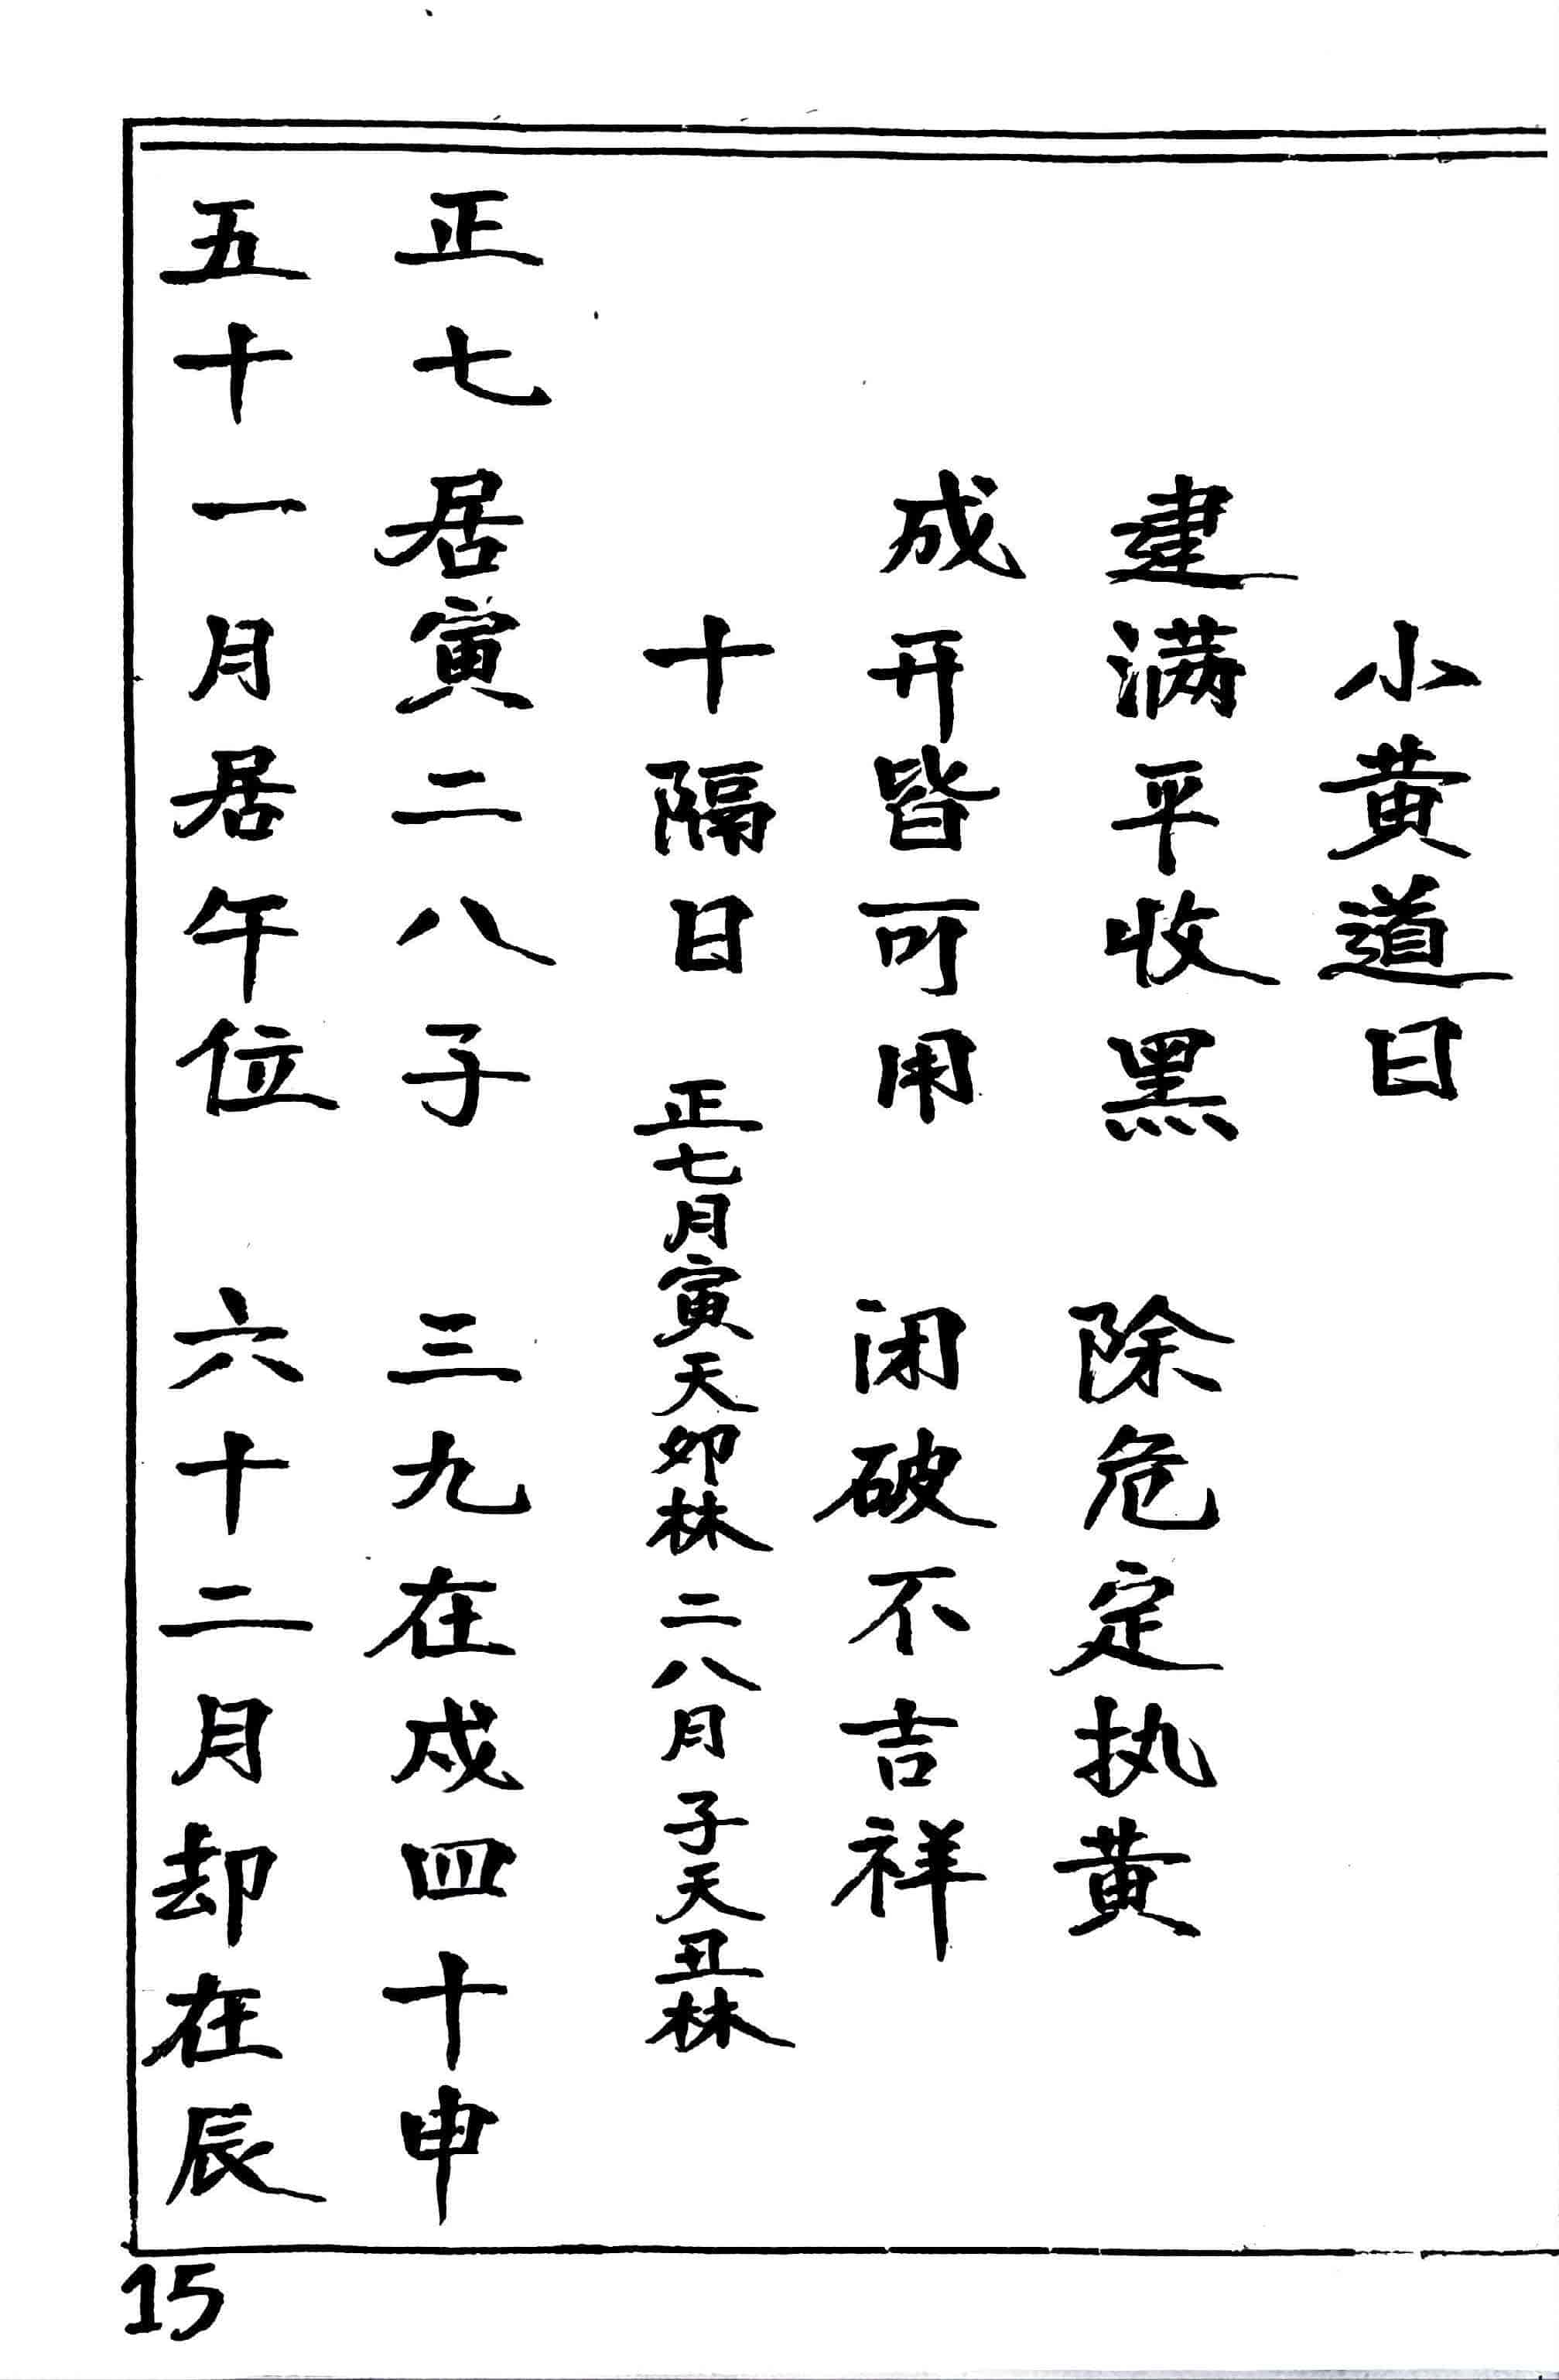 小黄道日
建满平收黑 除危定执黄
成开皆可用 闭破不吉祥
十隔日 正七月寅天卯林二八月子天丑林
正七居寅二八子 三九在戍四十申
五十一月居午位 六十二月却在辰
15